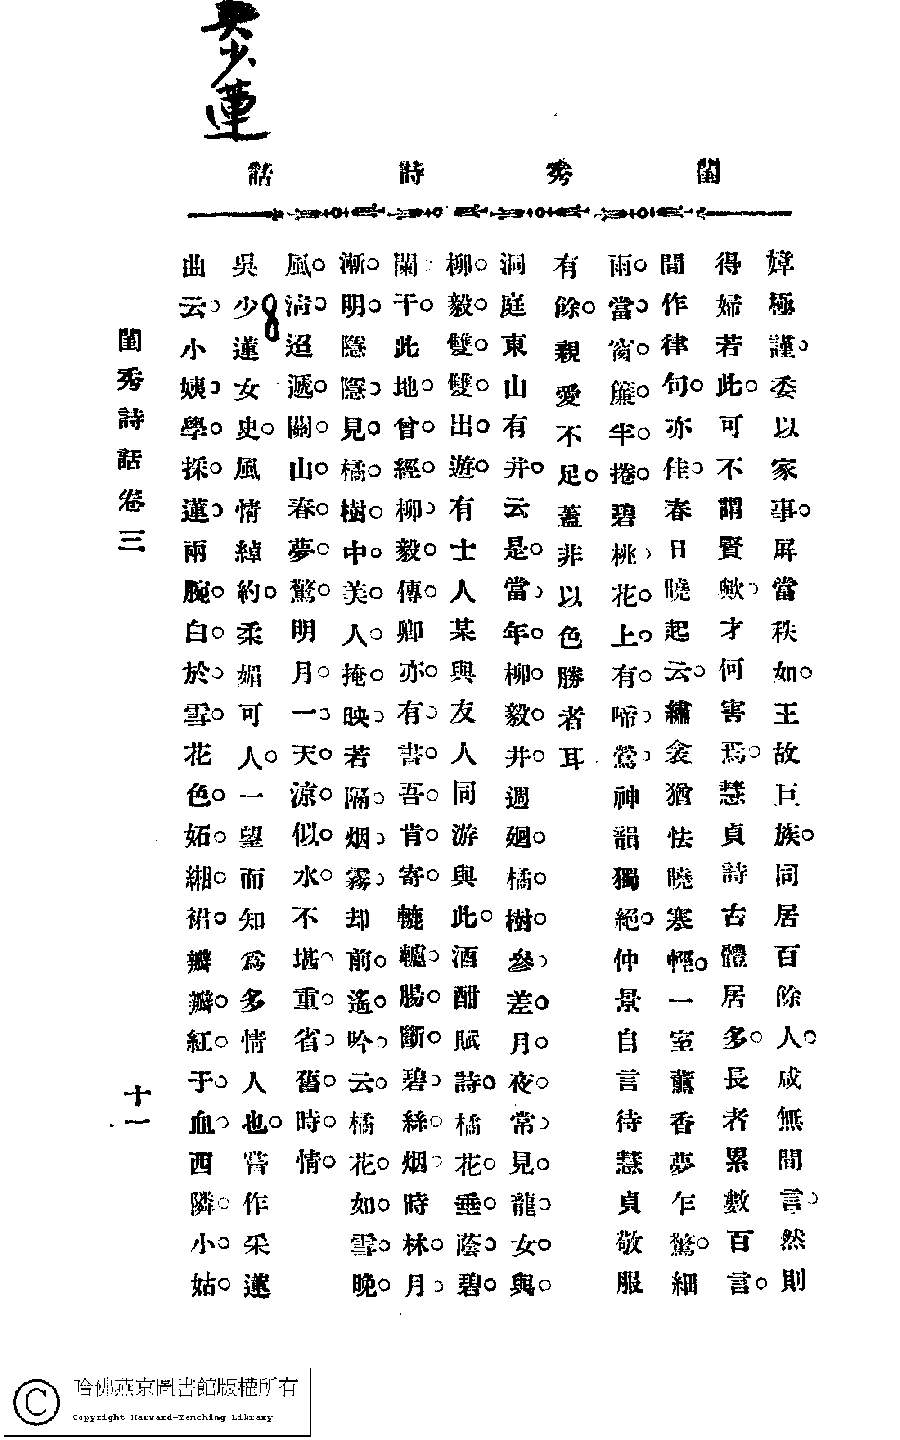 吳少蓮
閨秀詩話
嫜極謹委以家事屏當秩如王故巨族同居百餘人成無間言然則
得婦若此可不謂賢歟才何害焉慧貞詩古體居多長者累數百言
間作律句亦佳春日曉起云繡衾猶怯曉寒輕一室薰香夢乍驚細
雨當窗簾半捲碧桃花上有啼鶯神韻獨絕仲景自言待慧貞敬服
有餘親愛不足蓋非以色勝者耳
洞庭東山有井云是當年柳毅井週廻橘樹參差月夜常見龍女與
柳毅雙雙出遊有士人某與友人同游與此酒酣賦詩橘花垂蔭碧
闌干此地曾經柳毅傳卿亦有書吾肯寄轆轤腸斷碧絲烟時林月
漸明隱隱見橘樹中美人掩映若隔烟霧却前遙吟云橘花如雪晚
風清迢遞關山春夢驚明月一天涼似水不堪重省舊時情
吳少蓮女史風情綽約柔媚可人一望而知爲多情人也嘗作采蓮
曲云小姨學採蓮兩腕白於雪花色妬緗裙瓣瓣紅于血西隣小姑
閨秀詩話卷三
十一
哈佛燕京圖書館版權所有
Copyright Harvard-Yenching Library